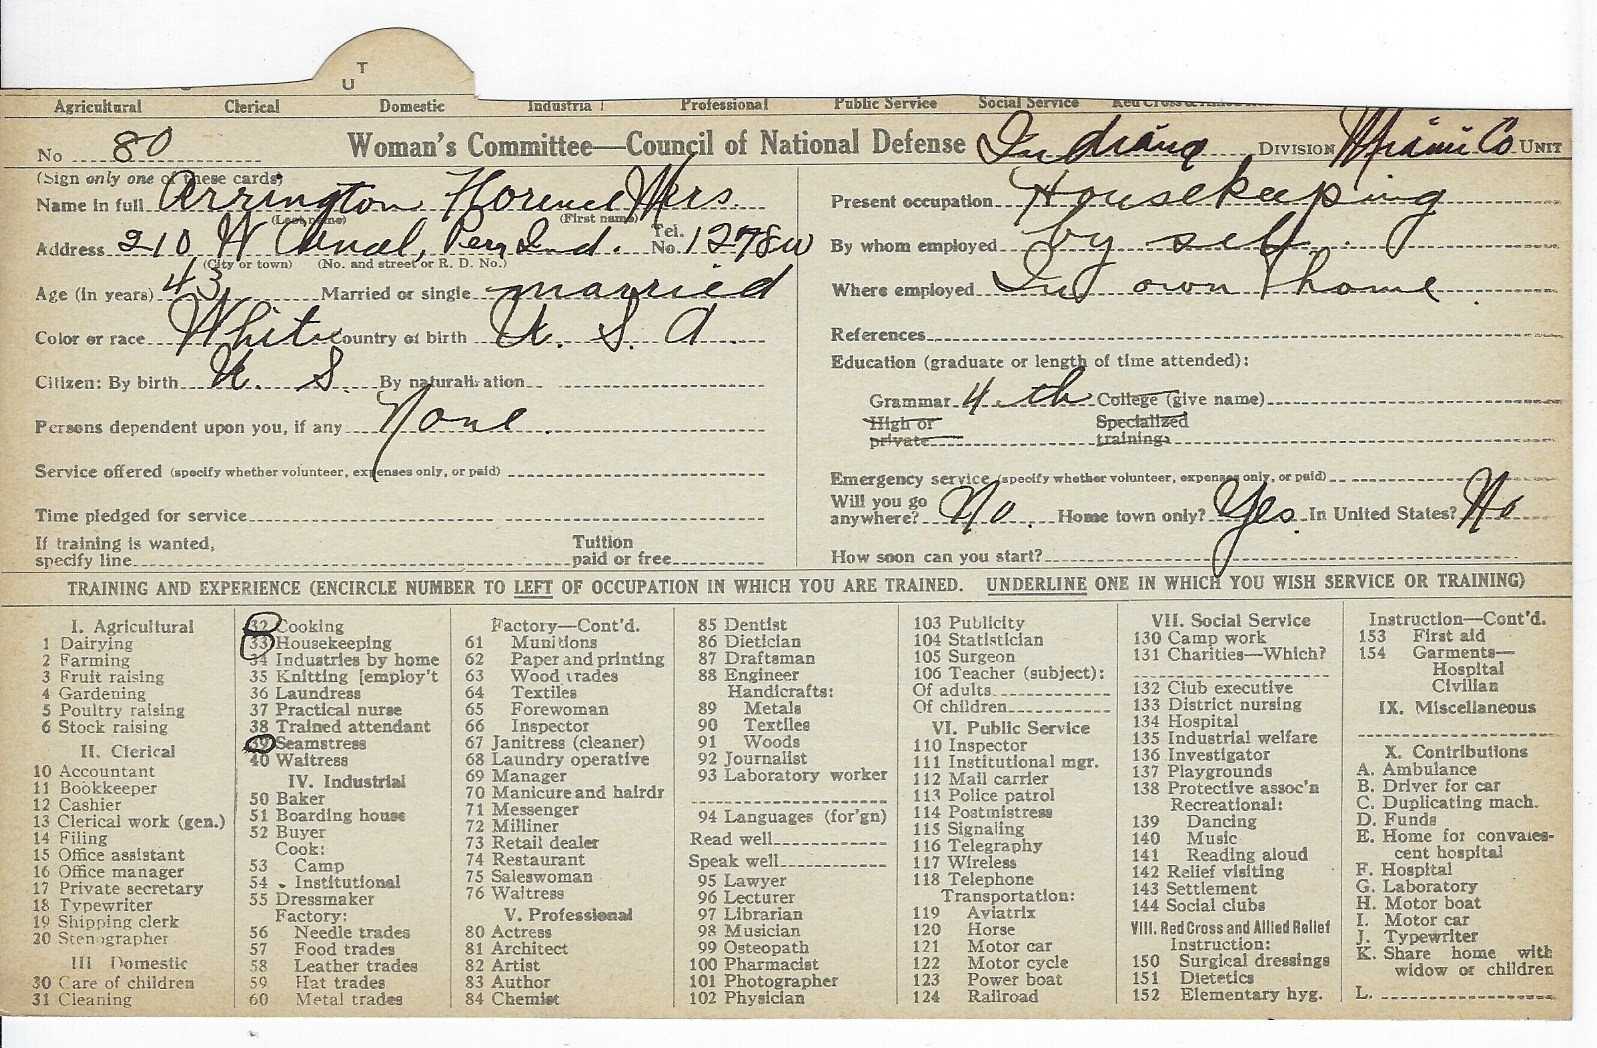 T
U
Agricultural Clerical Domestic Industrial Professional Public Service Social Service
No 80 Woman's Committee—Council of National Defense Indiana DIVISION Miami Co UNIT
(Sign only one of these cards)
Name in full Arrington Florence Mrs.
(Last name) (First name)
Address 210 W Canal, Peru Ind. Tel. No. 1278W
(City or town) (No. and street or R. D. No.)
Age (in years) 43 Married or single married
Color or race White Country of birth U. S. A.
Citizen: By birth U. S. By naturalization
Persons dependent upon you, if any None.
Service offered (specify whether volunteer, expenses only, or paid)
Time pledged for service
If training is wanted, specify line Tuition paid or free
Present occupation Housekeeping
By whom employed by self.
Where employed In own home.
References
Education (graduate or length of time attended):
Grammar 4-th College (give name)
High or private Specialized training
Emergency service (specify whether volunteer, expenses only, or paid)
Will you go anywhere? No. Home town only? Yes. In United States? No
How soon can you start?
TRAINING AND EXPERIENCE (ENCIRCLE NUMBER TO LEFT OF OCCUPATION IN WHICH YOU ARE TRAINED. UNDERLINE ONE IN WHICH YOU WISH SERVICE OR TRAINING)
I. Agricultural
1 Dairying
2 Farming
3 Fruit raising
4 Gardening
5 Poultry raising
6 Stock raising
II. Clerical
10 Accountant
11 Bookkeeper
12 Cashier
13 Clerical work (gen.)
14 Filing
15 Office assistant
16 Office manager
17 Private secretary
18 Typewriter
19 Shipping clerk
20 Stenographer
III Domestic
30 Care of children
31 Cleaning
32 Cooking
33 Housekeeping
34 Industries by home
35 Knitting [employ't
36 Laundress
37 Practical nurse
38 Trained attendant
39 Seamstress
40 Waitress
IV. Industrial
50 Baker
51 Boarding house
52 Buyer
Cook:
53 Camp
54 Institutional
55 Dressmaker
Factory:
56 Needle trades
57 Food trades
58 Leather trades
59 Hat trades
60 Metal trades
Factory—Cont'd.
61 Munitions
62 Paper and printing
63 Wood trades
64 Textiles
65 Forewoman
66 Inspector
67 Janitress (cleaner)
68 Laundry operative
69 Manager
70 Manicure and hairdr
71 Messenger
72 Milliner
73 Retail dealer
74 Restaurant
75 Saleswoman
76 Waitress
V. Professional
80 Actress
81 Architect
82 Artist
83 Author
84 Chemist
85 Dentist
86 Dietician
87 Draftsman
88 Engineer
Handicrafts:
89 Metals
90 Textiles
91 Woods
92 Journalist
93 Laboratory worker
94 Languages (for'gn)
Read well
Speak well
95 Lawyer
96 Lecturer
97 Librarian
98 Musician
99 Osteopath
100 Pharmacist
101 Photographer
102 Physician
103 Publicity
104 Statistician
105 Surgeon
106 Teacher (subject):
Of adults
Of children
VI. Public Service
110 Inspector
111 Institutional mgr.
112 Mail carrier
113 Police patrol
114 Postmistress
115 Signaling
116 Telegraphy
117 Wireless
118 Telephone
Transportation:
119 Aviatrix
120 Horse
121 Motor car
122 Motor cycle
123 Power boat
124 Railroad
VII. Social Service
130 Camp work
131 Charities—Which?
132 Club executive
133 District nursing
134 Hospital
135 Industrial welfare
136 Investigator
137 Playgrounds
138 Protective assoc'n
Recreational:
139 Dancing
140 Music
141 Reading aloud
142 Relief visiting
143 Settlement
144 Social clubs
VIII. Red Cross and Allied Relief
Instruction:
150 Surgical dressings
151 Dietetics
152 Elementary hyg.
Instruction—Cont'd.
153 First aid
154 Garments—
Hospital
Civilian
IX. Miscellaneous
X. Contributions
A. Ambulance
B. Driver for car
C. Duplicating mach.
D. Funds
E. Home for convales-
cent hospital
F. Hospital
G. Laboratory
H. Motor boat
I. Motor car
J. Typewriter
K. Share home with
widow or children
L.